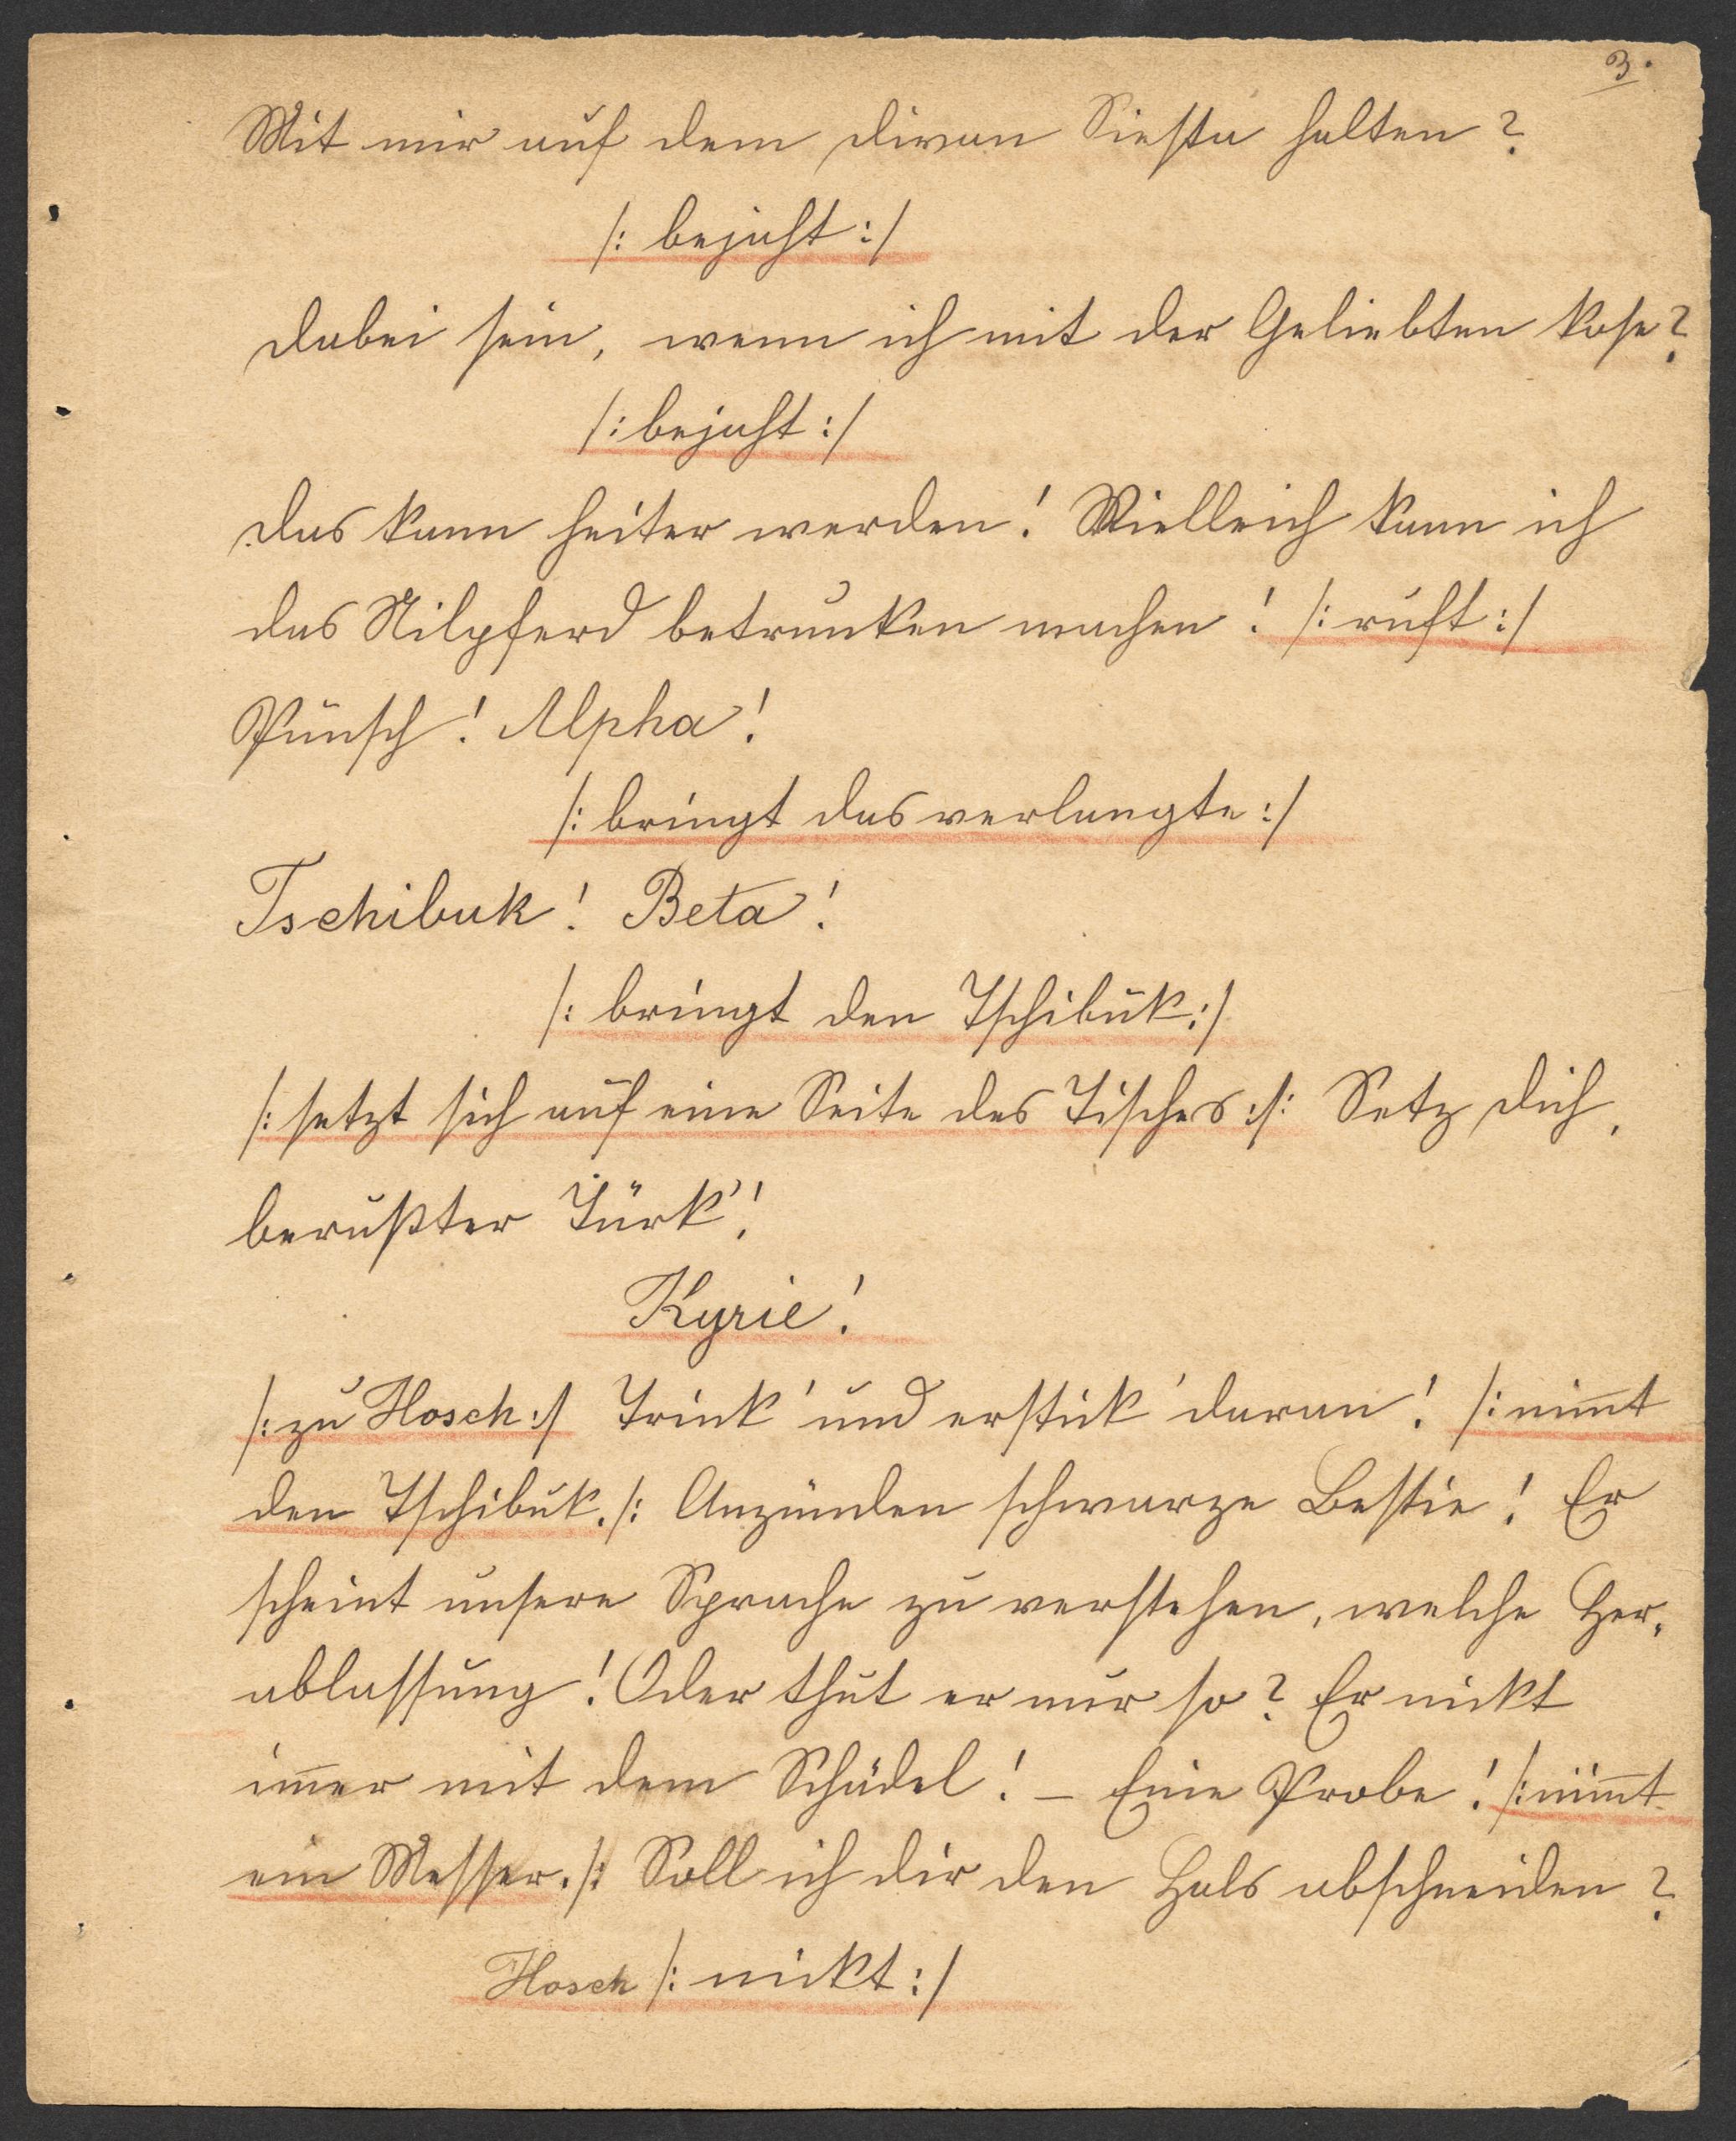 3.
Mit mir auf dem Divan Siesta halten?
/: bejaht :/
Dabei sein, wenn ich mit der Geliebten kose?
/: bejaht :/
Das kann heiter werden! Vielleich kann ich
das Nilpferd betrunken machen! /: ruft :/
Punsch! Alpha!
/: bringt das verlangte :/
Tschibuk! Beta!
/: bringt den Tschibuk :/
/: setzt sich auf eine Seite des Tisches :/: Setz dich,
berußter Türk'!
Kyrie!
/: zu Hosch :/ Trink' und erstick' daran! /: nim̅t
den Tschibuk. /: Anzünden schwarze Bestie! Er
scheint unsere Sprache zu verstehen, welche Her,
ablassung! Oder thut er nur so? Er nickt
im̅er mit dem Schädel! – Eine Probe! /: nim̅t
ein Messer. /: Soll ich dir den Hals abschneiden?
Hosch /: nickt :/